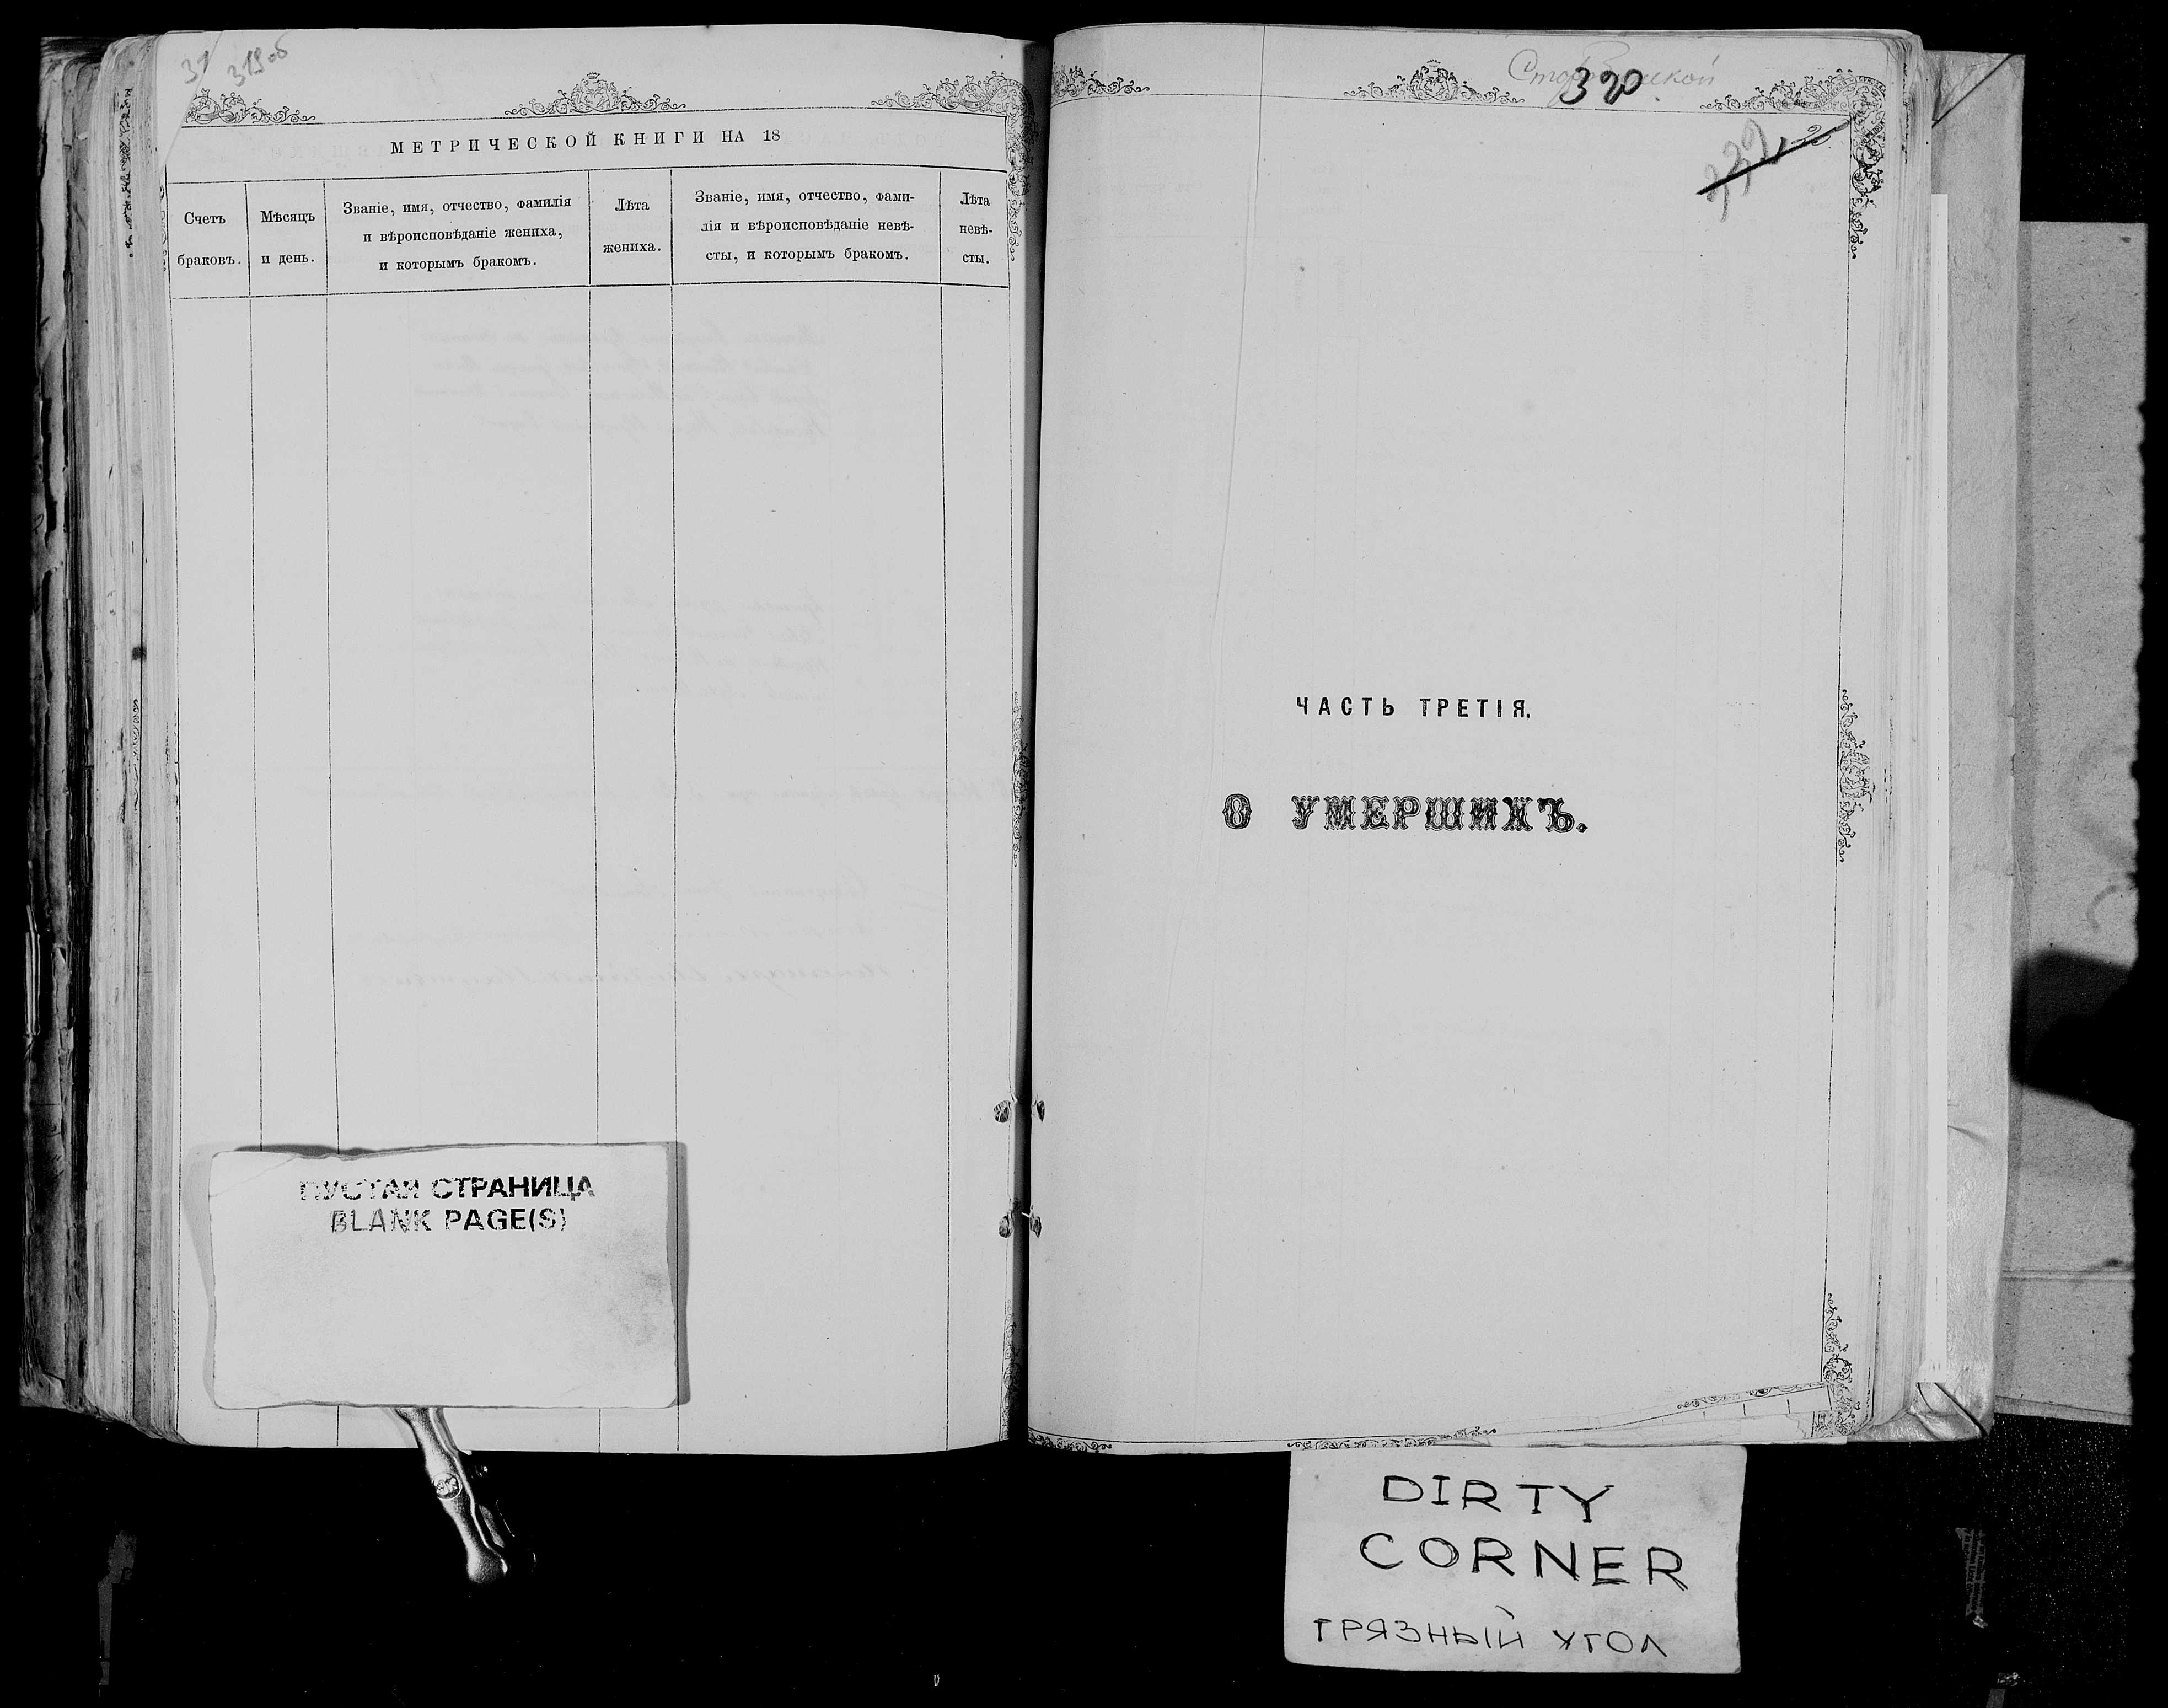 31
319 об
МЕТРИЧЕСКОЙ КНИГИ НА 18
Счетъ браковъ.
Мѣсяцъ и день.
Званіе, имя, отчество, фамилія
и вѣроисповѣданіе жениха,
и которымъ бракомъ.
Лѣта жениха.
Званіе, имя, отчество, фами-
лія и вѣроисповѣданіе невѣ-
сты, и которымъ бракомъ.
Лѣта
невѣ-
сты.
ПУСТАЯ СТРАНИЦА
BLANK PAGE(S)
320
ЧАСТЬ ТРЕТІЯ.
О УМЕРШИХЪ.
DIRTY
CORNER
ГРЯЗНЫЙ УГОЛ